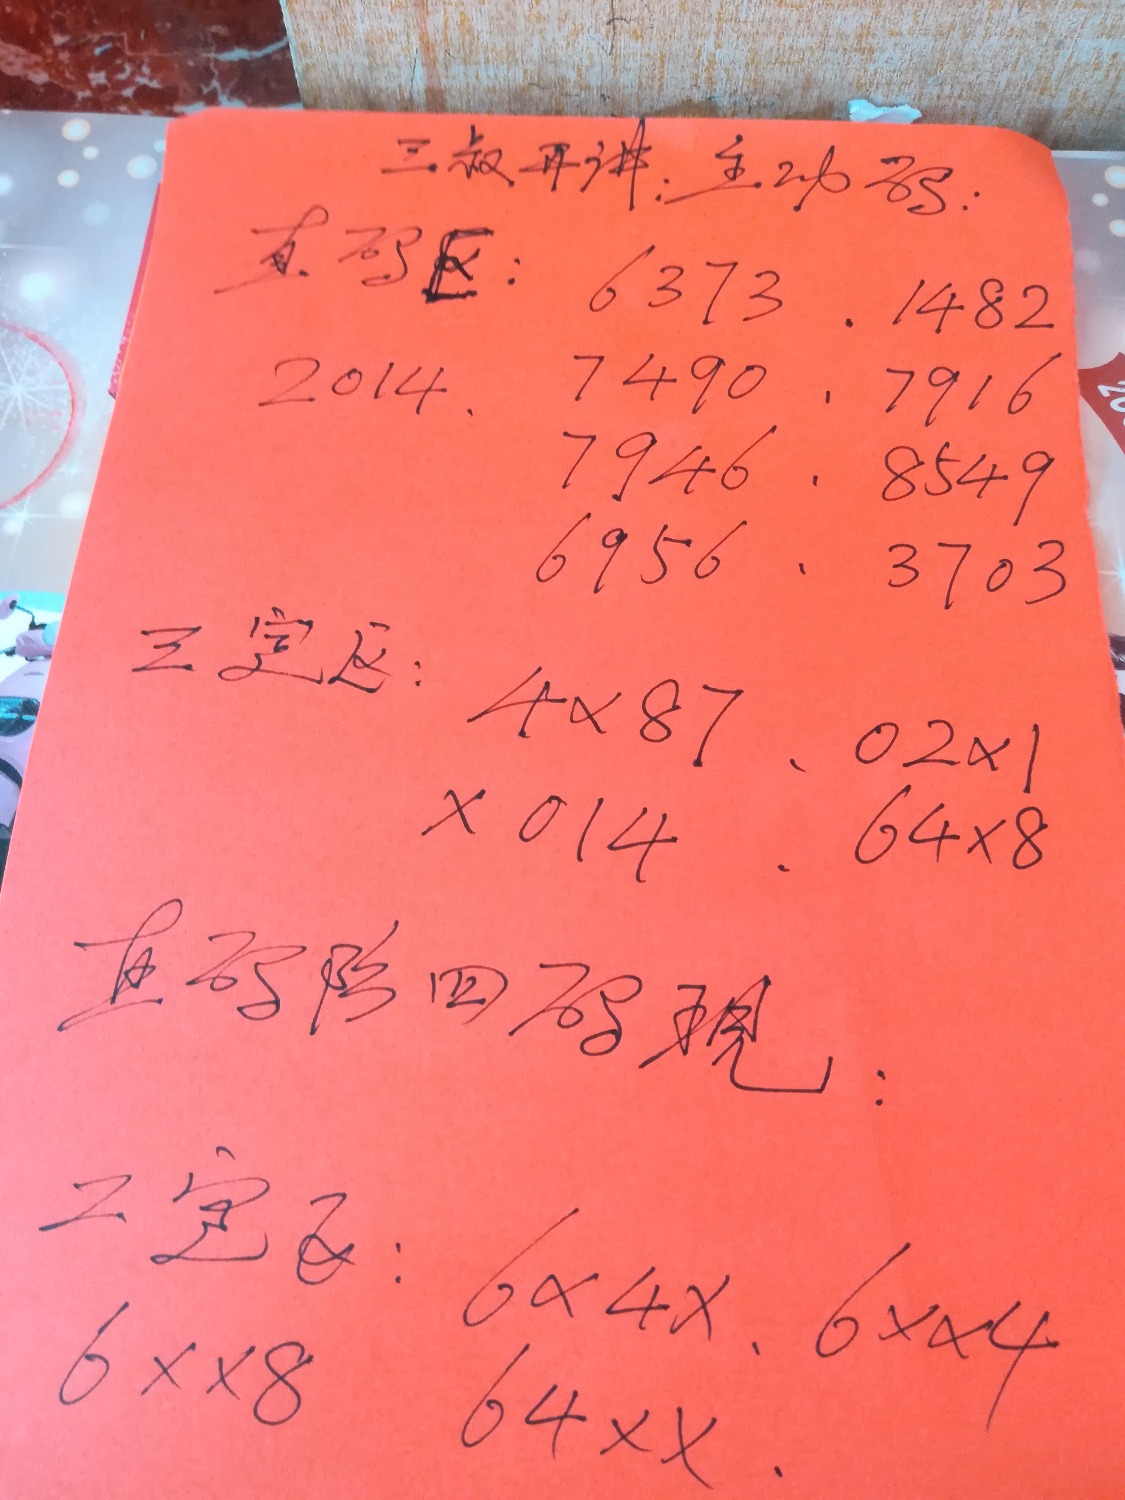 三叔开讲：主功码：
直码区：6373．1482
2014、7490．7916
7946．8549
6956、3703
三定区：4x87、02x1
x014．64x8
直码除四码现：
二定区：6x4x、6xx4
6xx8 64xx．